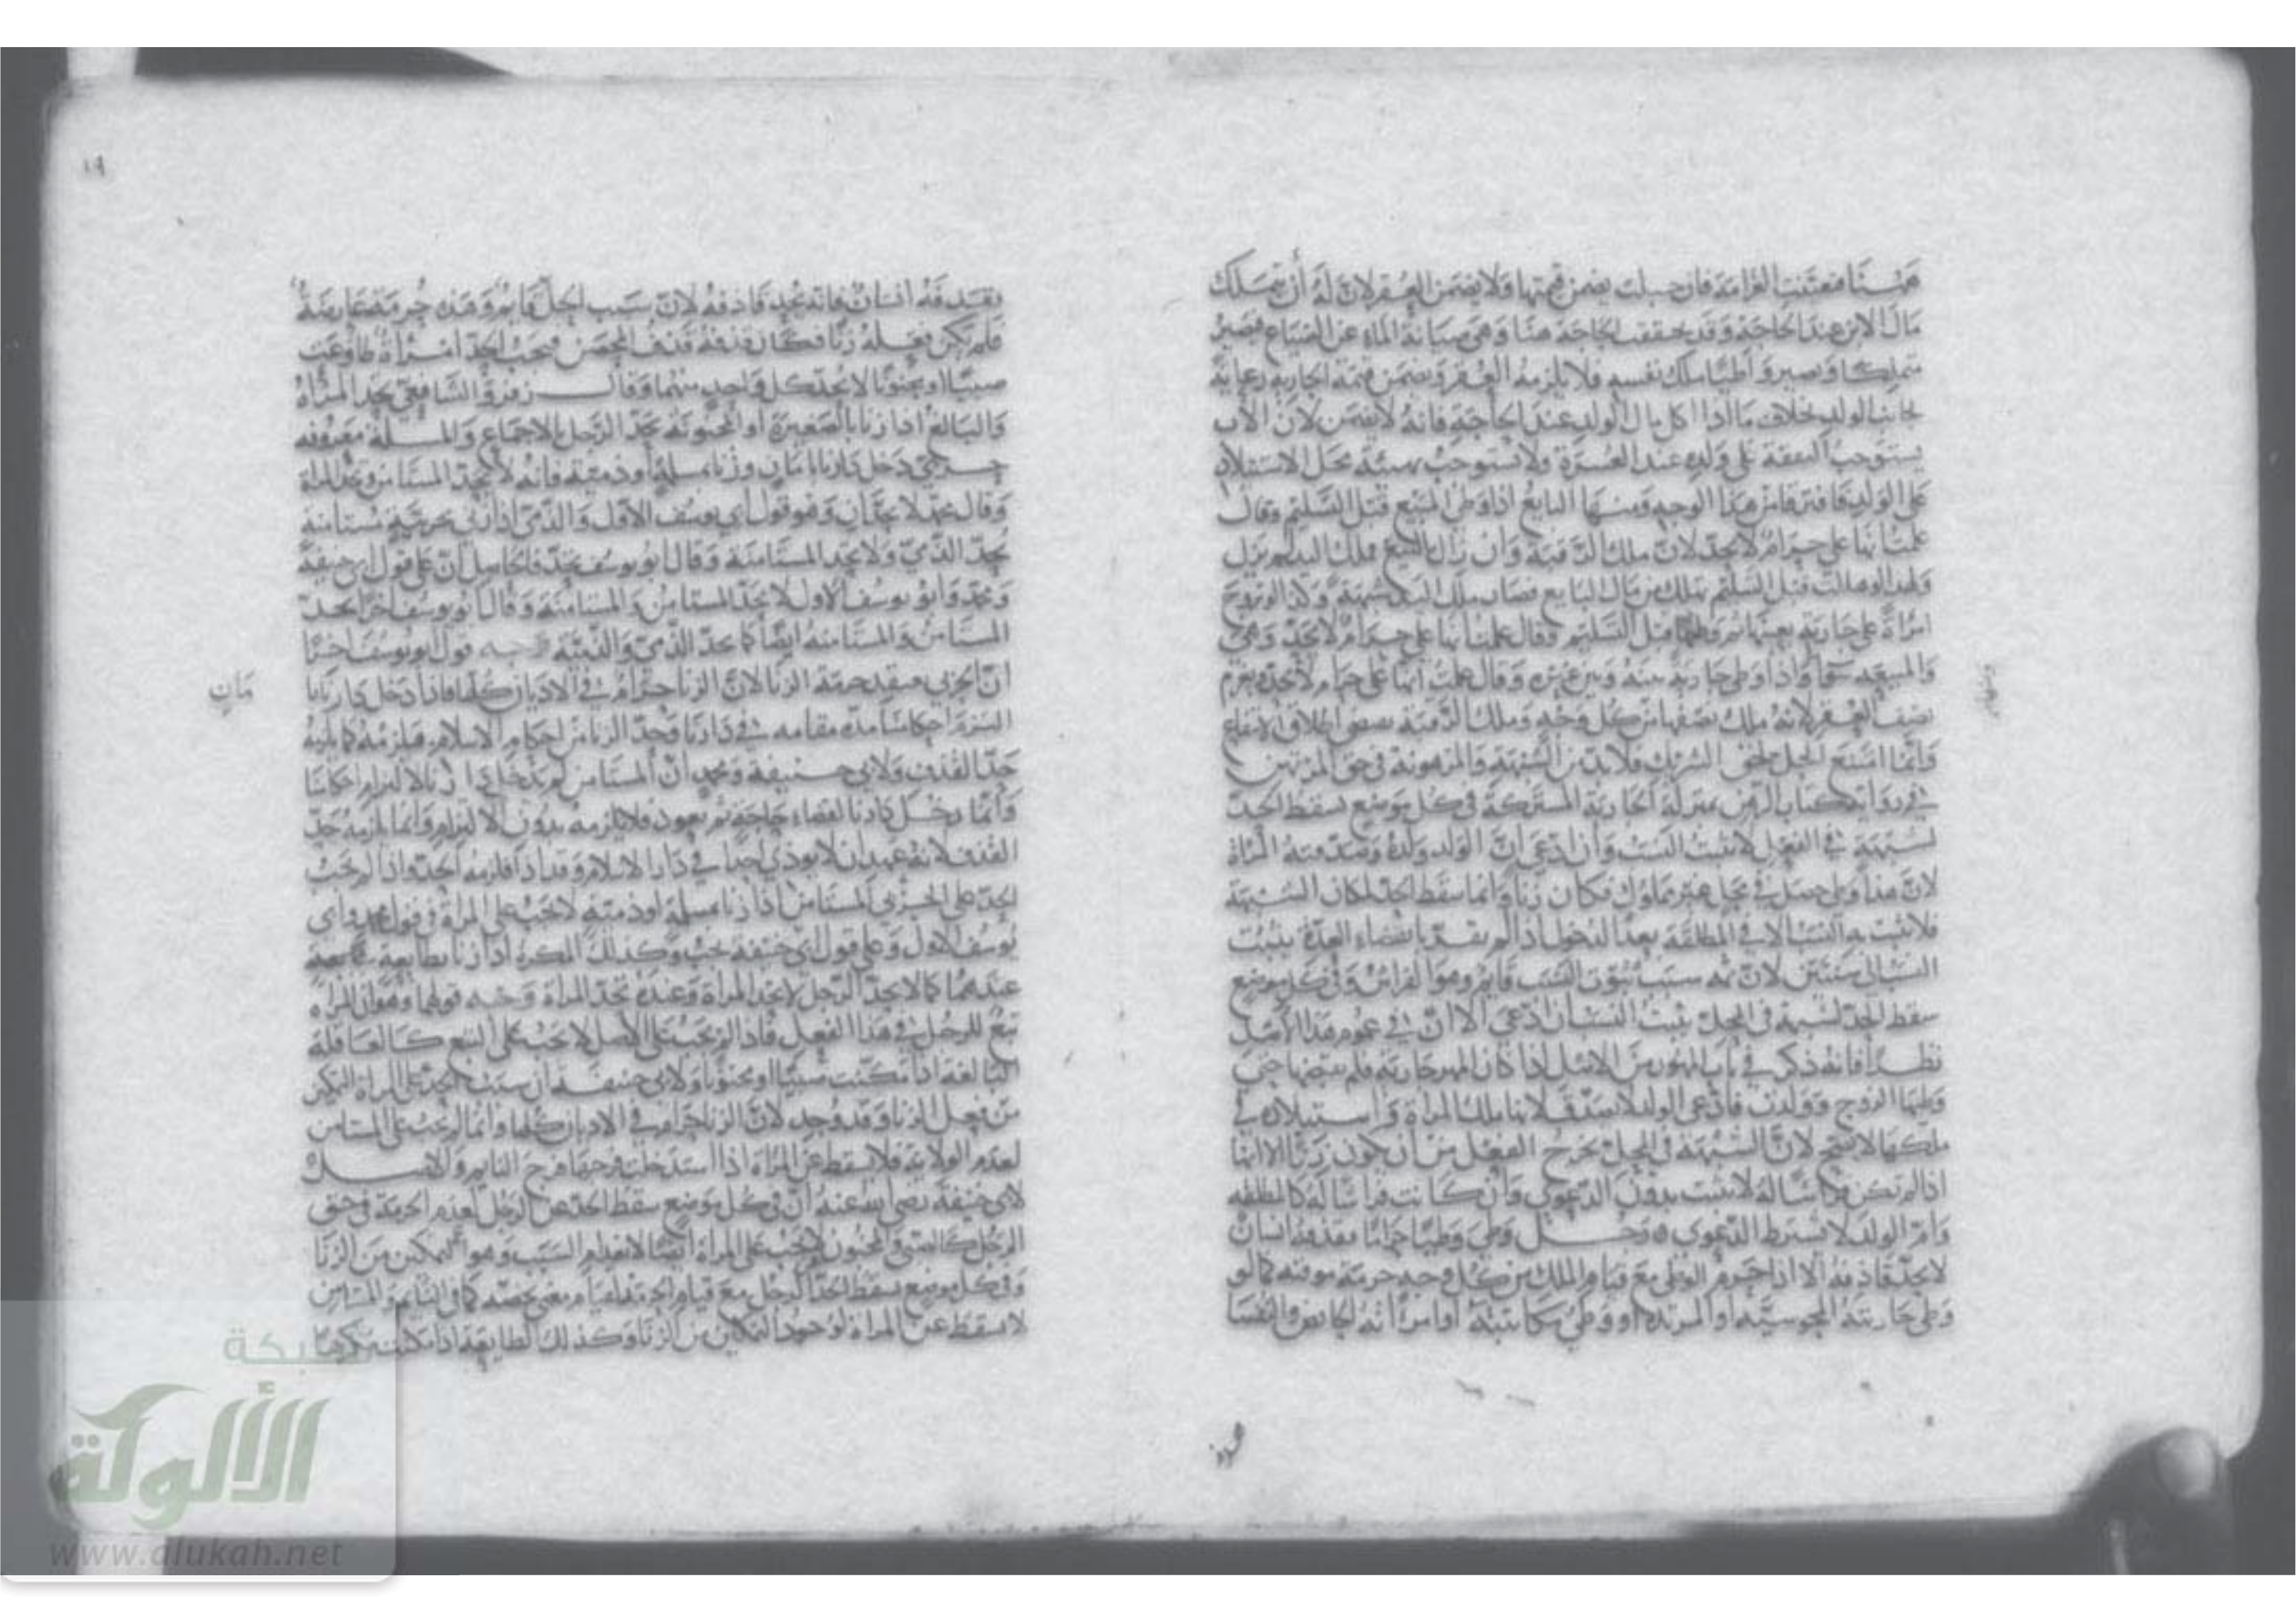 ههنا فتعينت الغرامة فان حبلت يضمن قيمتها ولا يضمن العقر لان له أن يتملك
مال الابن عند الحاجة وقد تحققت الحاجة هنا وهي صيانة الماء عن الضياع فيصير
متملكا ويصير واطيا ملك نفسه فلا يلزمه العقر ويضمن قيمة الجارية رعاية
لجانب الولد بخلاف ما اذا اكل مال الولد عند الحاجة فانه لا يضمن لان الأب
يستوجب النفقة على ولده عند العسرة ولا يستوجب تهيئة محل الاستيلاد
على الولد فافترقا من هذا الوجه ومنها البايع اذا وطئ المبيع قبل التسليم وقال
علمت انها علي حرام لا يحد لان ملك الرقبة وان زال بالبيع فملك اليد لم يزل
ولهذا لو هلكت قبل التسليم تهلك من مال البايع فصار ملك اليد شبهة وكذا لو تزوج
امرأة على جارية بعينها ثم وطئها قبل التسليم وقال علمت انها علي حرام لا يحد وهي
والمبيعة سواء واذا وطئ جارية بينه وبين غيره وقال علمت انها علي حرام لا يحد ويغرم
نصف العقر لانه ملك نصفها من كل وجه وملك الرقبة اطلاق الانتفاع
وانما امتنع الحل لحق الشريك فلا بد من الشبهة والمرهونة في حق المرتهن
في رواية كتاب الرهن بمنزلة الجارية المشتركة في كل موضع سقط الحد
لشبهة في الفعل لا يثبت النسب وان ادعى ان الولد ولده وصدقته المرأة
لان هذا وطي حصل في محل غير مملوك فكان زنا وانما سقط الحد لمكان الشبهة
فلا يثبت به النسب الا في المطلقة بعد الدخول اذا لم تقر بانقضاء العدة يثبت
النسب الى سنتين لان ثمه سبب ثبوت النسب قايم وهو الفراش وفي كل موضع
سقط الحد لشبهة في المحل يثبت النسب ان ادعى الا ان في عموم هذا الاصل
نظرا فانه ذكر في باب المهور من الاصل اذا كان المهر جارية فلم تقبضها حتى
وطيها الزوج وولدت فادعى الولد لا يصدق لانها ملك المرأة واستيلاده في
ملكها لا يصح لان الشبهة في المحل تخرج الفعل من أن يكون زنا الا انها
اذا لم تكن فراشا له لا يثبت بدون الدعوى وان كانت فراشا له كالمطلقة
وام الولد لا تشترط الدعوى ه رجل وطي وطيا حراما فقذفه انسان
لا يحد قاذفه الا اذا حرم الوطي مع قيام الملك من كل وجه حرمة موقتة كما لو
وطي جاريته المجوسية او المرتدة او وطي مكاتبته او امرأته الحايض والنفسا
١٩
يقذفه انسان فانه يحد قاذفه لان سبب الحل قايم وهذه حرمة عارضة
فلم يكن فعله زنا فكان قذفه قذف المحصن فيجب الحد امرأة طاوعت
صبيا او مجنونا لا يحد كل واحد منهما وقال زفر والشافعي يحد المرأة
والبالغ اذا زنا بالصغيرة أو المجنونة يحد الرجل بالاجماع والمسألة معروفة
حربي دخل دارنا بامان وزنا بمسلمة أو ذمية فانه لا يحد المستامن ويحد المرأة
وقال محمد لا يحدان وهو قول أبي يوسف الاول والذمي اذا زنى بحربية مستامنة
يحد الذمي ولا يحد المستامنة وقال ابو يوسف يحد فالحاصل ان على قول ابي حنيفة
ومحمد وابو يوسف الاول لا يحد المستامن والمستامنة وقال ابو يوسف اخرا يحد
المستامن والمستامنة ايضا كما يحد الذمي والذمية وجه قول ابو يوسف اخرا
ان الحربي معتقد حرمة الزنا لان الزنا حرام في الاديان كلها فاذا دخل دارنا با
مان
التزم احكامنا مدة مقامه في دارنا وحد الزنا من احكام الاسلام فيلزمه كما يلزمه
حد القذف ولابي حنيفة ومحمد أن المستامن لم يدخل دارنا لالتزام احكامنا
وانما دخل دارنا لقضاء حاجة ثم يعود فلا يلزمه بدون الالتزام وانما يلزمه حد
القذف لانه عهد ان لا يوذي احدا في دار الاسلام وقد اذا فلزمه الحد واذا لم يجب
الحد على الحربي المستامن اذا زنا بمسلمة او ذمية لا يجب على المرأة في قول محمد وابي
يوسف الاول وعلى قول ابي حنيفة يجب وكذلك المكره اذا زنا بطايعة
عندهما كما لا يحد الرجل لا يحد المرأة وعنده يحد المرأة وجه قولهما وهو ان المرأة
تبع للرجل في هذا الفعل فاذا لم يجب على الاصل لا يجب على التبع كالعاقلة
البالغة اذا مكنت صبيا او مجنونا ولابي حنيفة ان سبب الحد على المرأة التمكين
من فعل الزنا وقد وجد لان الزنا حرام في الاديان كلها وانما لم يجب على المستامن
لعدم الولاية فلا يسقط عن المرأة اذا استدخلت فرجها فرج النايم والاصل
لابي حنيفة رضي الله عنه أن في كل موضع سقط الحد عن الرجل لعدم الحرمة في حق
الرجل كالصبي والمجنون لا يجب على المرأة ايضا لانعدام السبب وهو التمكين من الزنا
وفي كل موضع سقط الحد الرجل مع قيام الحرمة لقيام معنى يخصه كما في النايم والمستامن
لا يسقط عن المرأة لوجود التمكين من الزنا وكذلك الطايعة اذا مكنت مكرها
شبكة
الألوكة
www.alukah.net